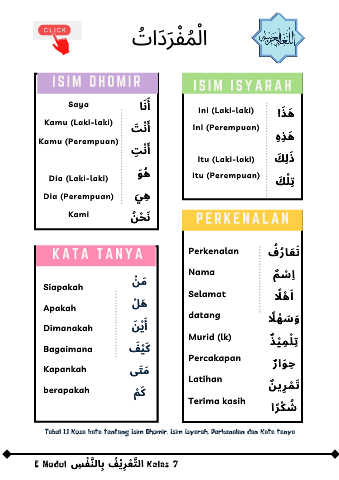 CLICK
الْمُفْرَدَاتُ
اللغة العربية
ISIM DHOMIR
Saya أَنَا
Kamu (Laki-laki) أَنْتَ
Kamu (Perempuan) أَنْتِ
Dia (Laki-laki) هُوَ
Dia (Perempuan) هِيَ
Kami نَحْنُ
ISIM ISYARAH
Ini (Laki-laki) هَذَا
Ini (Perempuan) هَذِهِ
Itu (Laki-laki) ذَلِكَ
Itu (Perempuan) تِلْكَ
KATA TANYA
Siapakah مَنْ
Apakah هَلْ
Dimanakah أَيْنَ
Bagaimana كَيْفَ
Kapankah مَتَى
berapakah كَمْ
PERKENALAN
Perkenalan تَعَارُفُ
Nama اِسْمٌ
Selamat اَهْلًا
datang وَسَهْلًا
Murid (lk) تِلْمِيْذٌ
Percakapan حِوَارٌ
Latihan تَمْرِيْنٌ
Terima kasih شُكْرًا
Tabel 1.1 Kosa kata tentang Isim Dhomir, Isim Isyarah, Perkenalan dan Kata tanya
E Modul التَّعْرِيْفُ بِالنَّفْسِ Kelas 7